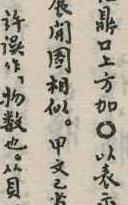 鼎口上方加〇以表示
展開圖相似。甲文已
許誤作、物數也。从貝